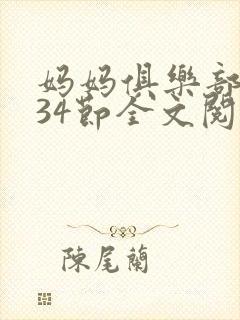 妈妈俱樂部
34節全文閱
陳尾蘭